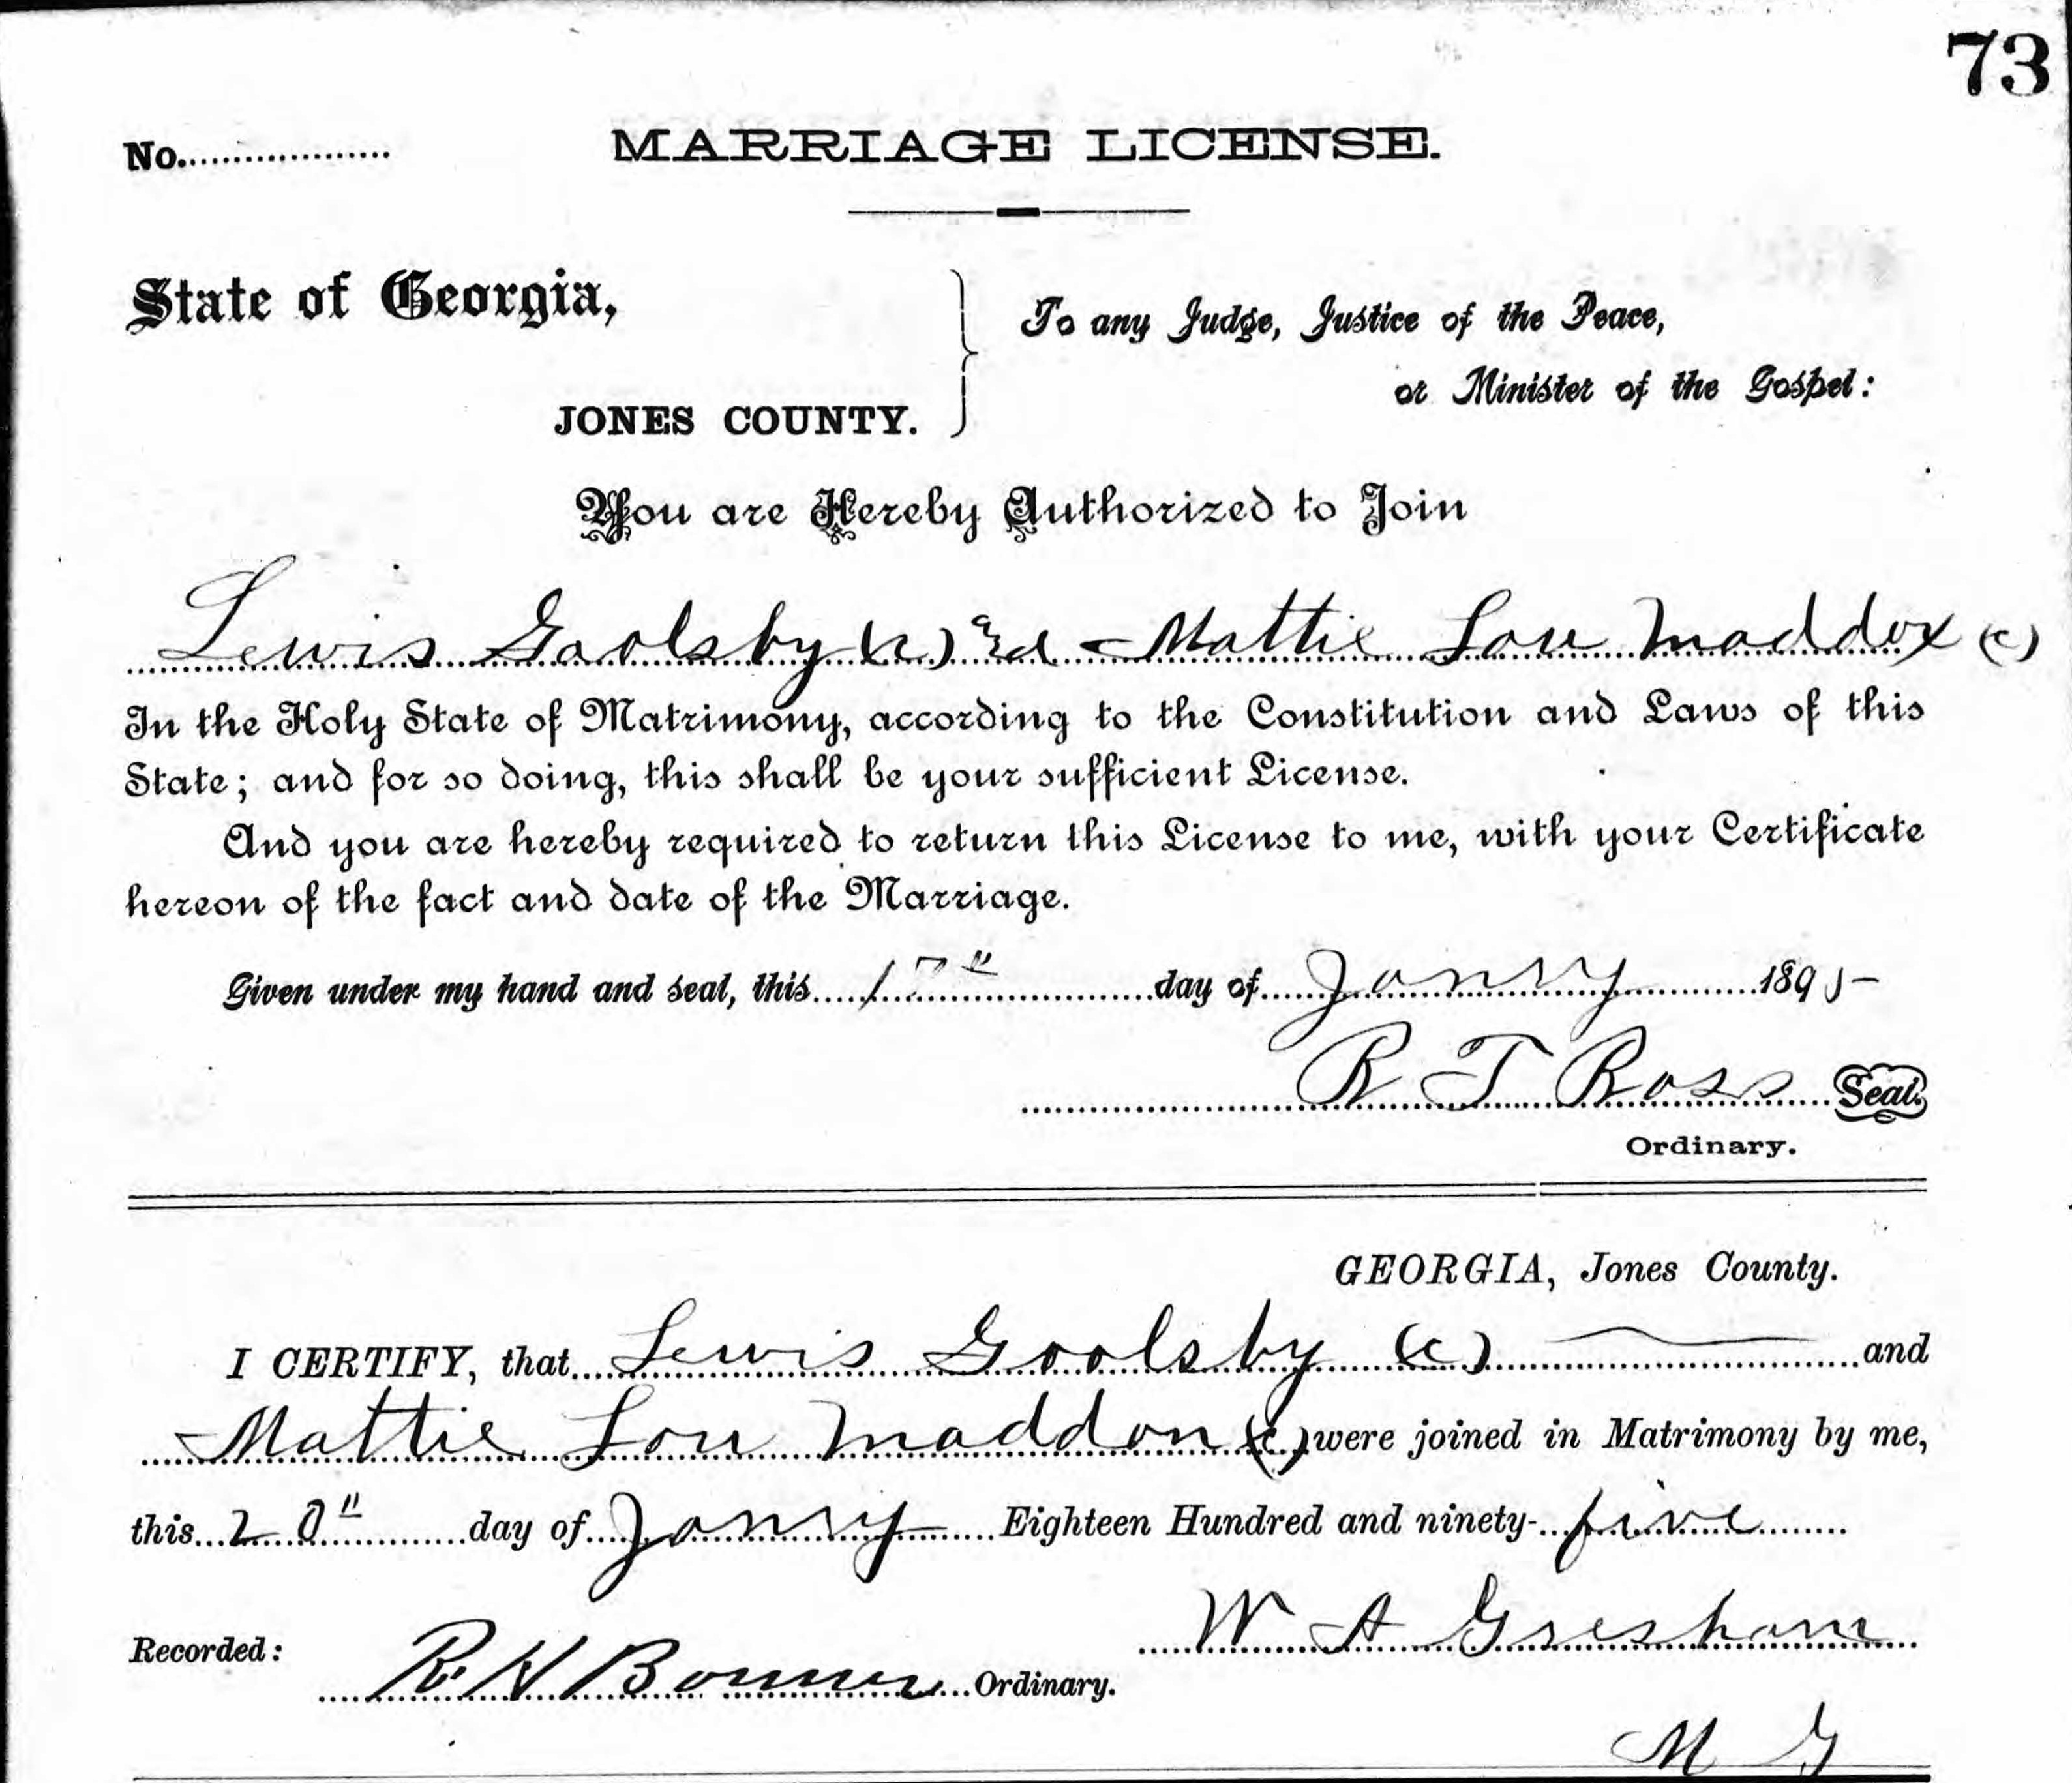 73
No.
MARRIAGE LICENSE.
State of Georgia,
JONES COUNTY.
To any Judge, Justice of the Peace,
or Minister of the Gospel:
You are Hereby Authorized to Join
Lewis Goolsby (c) and Mattie Lou Maddox (c)
In the Holy State of Matrimony, according to the Constitution and Laws of this
State; and for so doing, this shall be your sufficient License.
And you are hereby required to return this License to me, with your Certificate
hereon of the fact and date of the Marriage.
Given under my hand and seal, this 17" day of Janry 1895
R T Ross Seal.
Ordinary.
GEORGIA, Jones County.
I CERTIFY, that Lewis Goolsby (c) and
Mattie Lou Maddox (c) were joined in Matrimony by me,
this 20" day of Janry Eighteen Hundred and ninety-five
W A Gresham
Recorded:
R H Bonner Ordinary.
M G